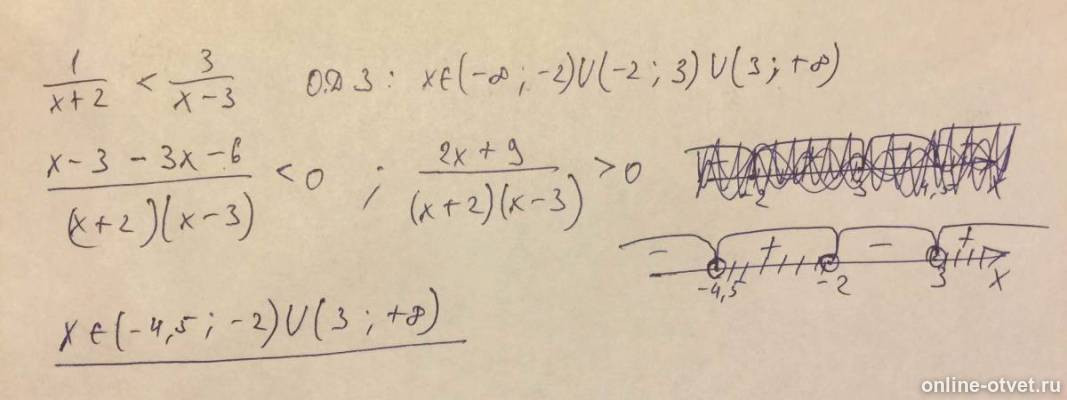 1/(x+2) < 3/(x-3) О.Д.З: x∈(-∞; -2)∪(-2; 3)∪(3; +∞)
(x-3 - 3x-6)/((x+2)(x-3)) < 0 ; (2x+9)/((x+2)(x-3)) > 0
- + - +
-4,5 -2 3 x
x∈(-4,5; -2)∪(3; +∞)
online-otvet.ru